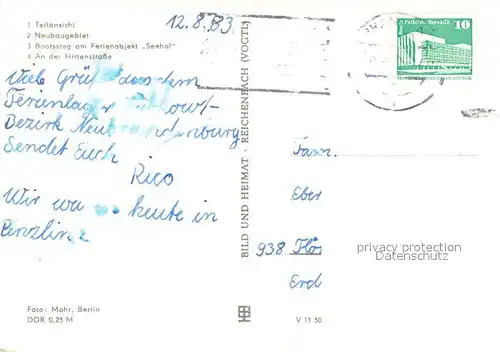 1 Teilansicht
2 Neubaugebiet
3 Bootssteg am Ferienobjekt „Seehof“
4 An der Hirtenstraße
12.8.83
10
Viele Grüße aus dem
Ferienlager
Bezirk Neubrandenburg
Sendet Euch
Rico
Wir wa heute in
Penzlin
BILD UND HEIMAT · REICHENBACH (VOGTL)
Fam.
Eber
938 Flö
Erd
privacy protection
Datenschutz
Foto: Mohr, Berlin
DDR 0,25 M
V 11 50